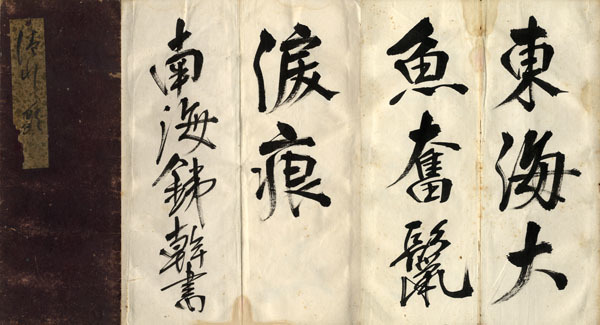 東海大
魚奮鬣
淚痕
南海銕幹書